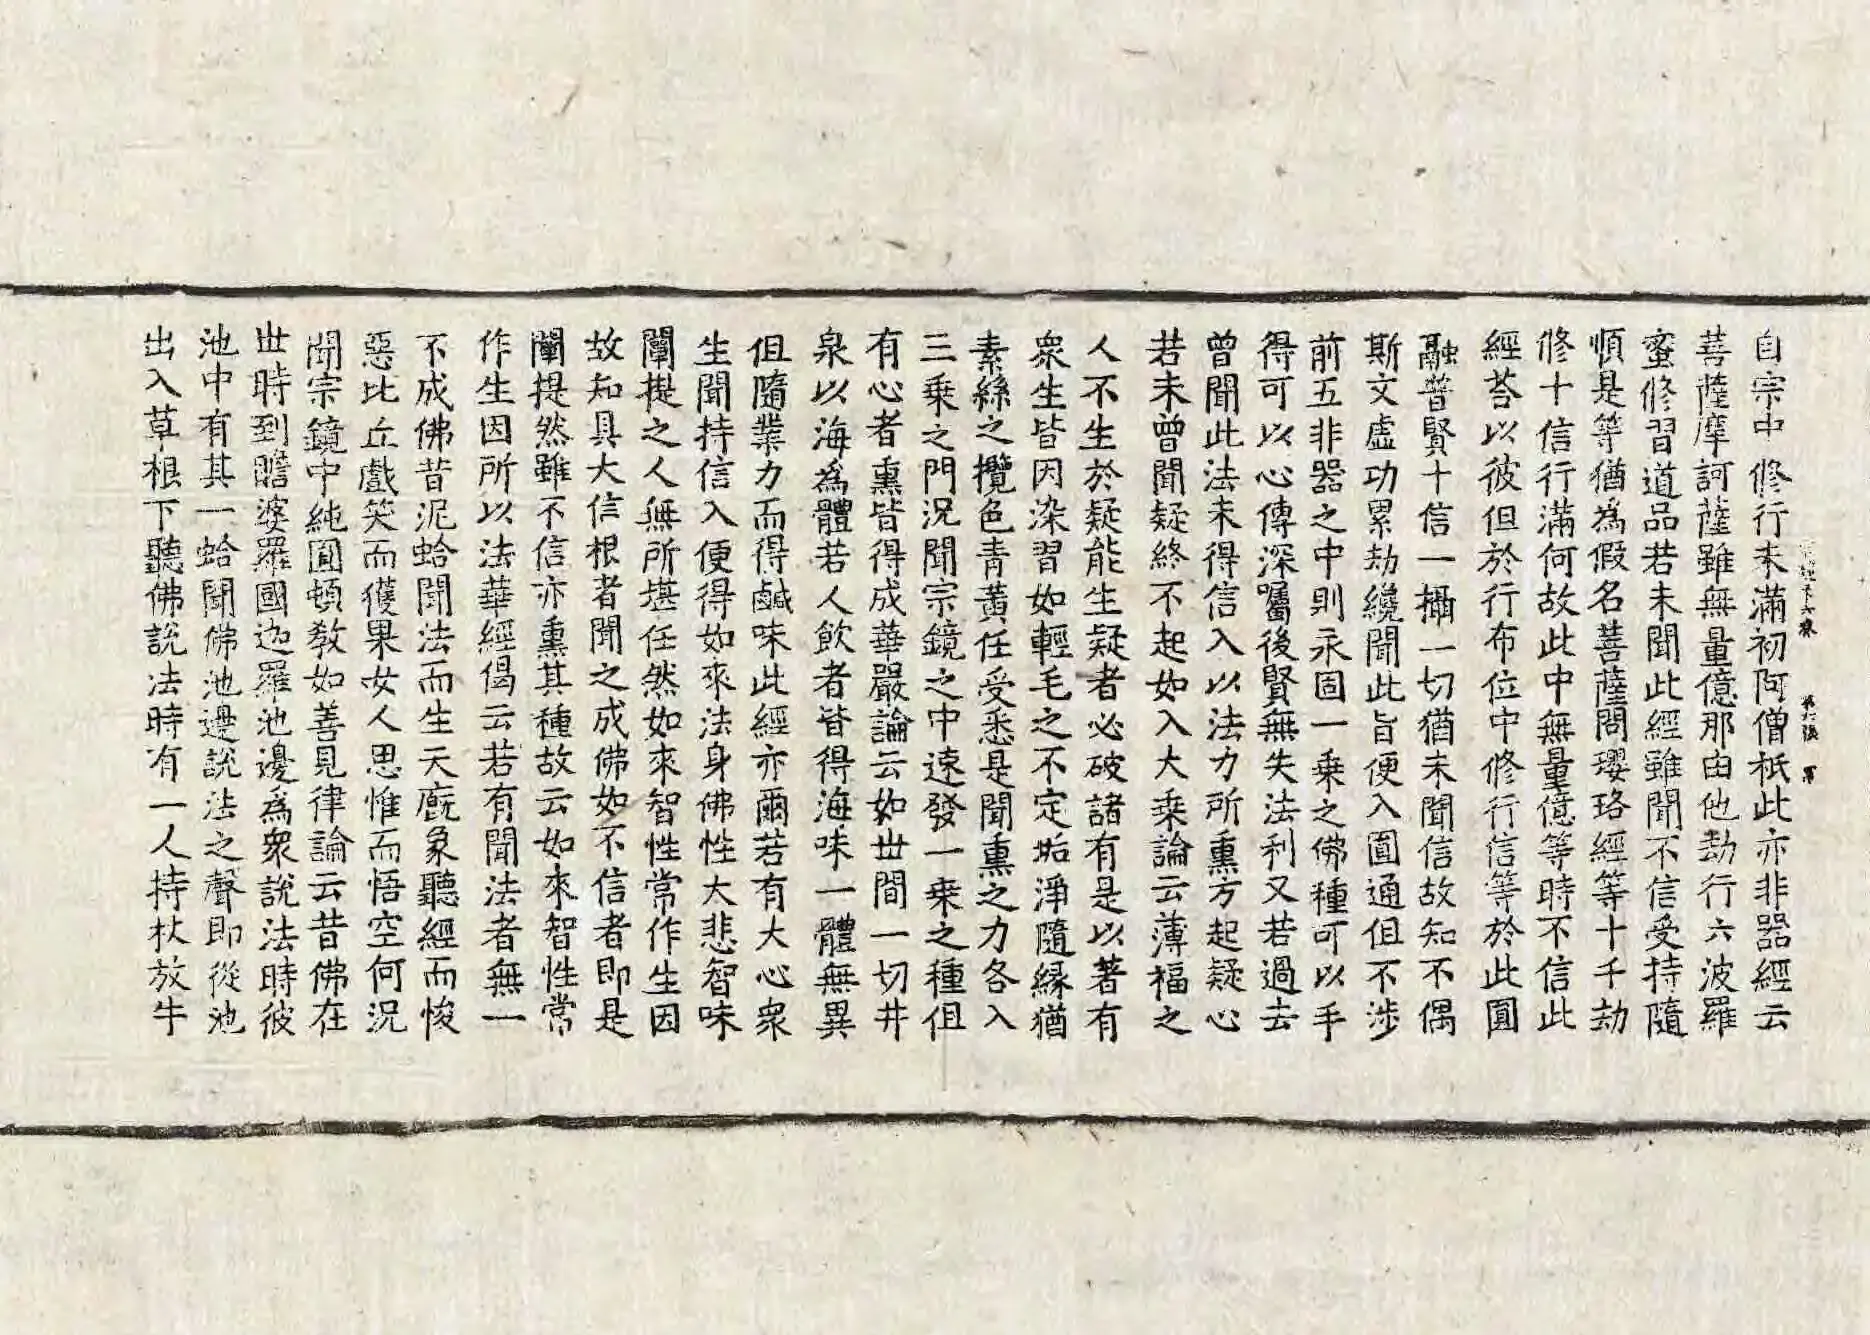 自宗中修行未滿初阿僧祇此亦非器經云
菩薩摩訶薩雖無量億那由他劫行六波羅
蜜修習道品若未聞此經雖聞不信受持隨
順是等猶為假名菩薩問瓔珞經等十千劫
修十信行滿何故此中無量億等時不信此
經荅以彼但於行布位中修行信等於此圓
融普賢十信一攝一切猶未聞信故知不偶
斯文虛功累劫纔聞此旨便入圓通但不涉
前五非器之中則永固一乗之佛種可以手
得可以心傳深囑後賢無失法利又若過去
曾聞此法未得信入以法力所熏方起疑心
若未曾聞疑終不起如入大乗論云薄福之
人不生於疑能生疑者必破諸有是以著有
衆生皆因染習如輕毛之不定垢淨隨緣猶
素絲之攬色青黃任受悉是聞熏之力各入
三乗之門況聞宗鏡之中速發一乗之種但
有心者熏皆得成華嚴論云如世間一切井
泉以海為體若人飲者皆得海味一體無異
但隨業力而得鹹味此經亦爾若有大心衆
生聞持信入便得如來法身佛性大悲智味
闡提之人無所堪任然如來智性常作生因
故知具大信根者聞之成佛如不信者即是
闡提然雖不信亦熏其種故云如來智性常
作生因所以法華經偈云若有聞法者無一
不成佛昔泥蛤聞法而生天廐象聽經而悛
惡比丘戲笑而獲果女人思惟而悟空何況
聞宗鏡中純圓頓教如善見律論云昔佛在
世時到瞻婆羅國迦羅池邊為衆說法時彼
池中有其一蛤聞佛池邊說法之聲即從池
出入草根下聽佛說法時有一人持杖放牛